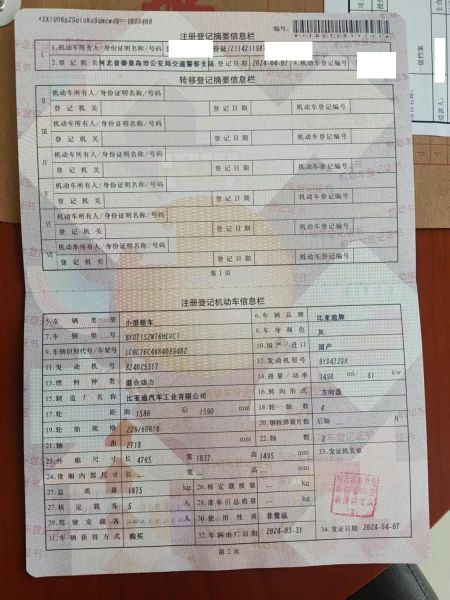 注册登记摘要信息栏
编号:
1.机动车所有人/身份证明名称/号码
2.登记机关 河北省秦皇岛市公安局交通警察支队 3.登记日期 2024-04-07 4.机动车登记编号
转移登记摘要信息栏
II 机动车所有人/身份证明名称/号码
登记机关 登记日期 机动车登记编号
III 机动车所有人/身份证明名称/号码
登记机关 登记日期 机动车登记编号
IV 机动车所有人/身份证明名称/号码
登记机关 登记日期 机动车登记编号
V 机动车所有人/身份证明名称/号码
登记机关 登记日期 机动车登记编号
VI 机动车所有人/身份证明名称/号码
登记机关 登记日期 机动车登记编号
VII 机动车所有人/身份证明名称/号码
登记机关 登记日期 机动车登记编号
第1页
注册登记机动车信息栏
5.车辆类型 小型轿车 6.车辆品牌 比亚迪牌
7.车辆型号 8.车身颜色 灰
9.车辆识别代号/车架号 10.国产/进口 国产
11.发动机号 12.发动机型号 BYD472QA
13.燃料种类 混合动力 14.排量/功率 1498 ml/ 81 kw
15.制造厂名称 比亚迪汽车工业有限公司 16.转向形式 方向盘
17.轮距 前 1580 后 1590 mm 18.轮胎数 4
19.轮胎规格 225/60R16 20.钢板弹簧片数 后轴 -- 片
21.轴距 2718 mm 22.轴数 2
23.外廓尺寸 长 4765 宽 1837 高 1495 mm 33.发证机关章
24.货厢内部尺寸 长 -- 宽 -- 高 -- mm
25.总质量 1875 kg 26.核定载质量 -- kg
27.核定载客 5 人 28.准牵引总质量 -- kg
29.驾驶室载客 -- 人 30.使用性质 非营运
31.车辆获得方式 购买 32.车辆出厂日期 2024-03-31 34.发证日期 2024-04-07
第2页